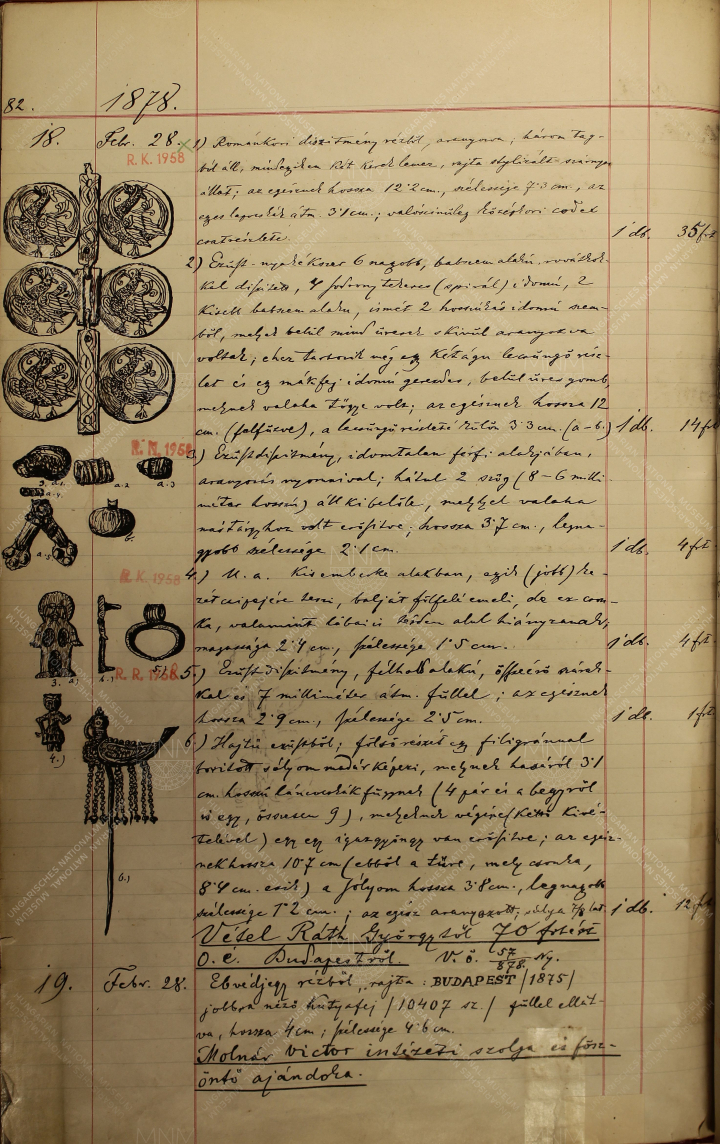 82. 1878.
18. Febr. 28. 1) Románkori diszitmény rézből, aranyozva; három tag-
R. K. 1958
ból áll, mindegyiken két kerek lemez, rajta stylizált szárnyas
állat; az egésznek hossza 12·2 cm., szélessége 7·3 cm., az
egyes lapocskák átm. 3·1 cm.; valószinüleg középkori codex
csatrészlete. 1 db. 35 frt
2) Ezüst-nyakékszer 6 nagobb, babszem alakú, rovátkok-
kal díszitett, 4 sodrony tekercs (spirál) idomú, 2
kisebb babszem alaku, ismét 2 hosszúkás idomú szem-
ből, melyek belül mind üresek s kívül aranyozva
voltak; ehez tartozik még egy kétágu lecsüngő rész-
let és egy mákfej idomú gerezdes, belül üres gomb,
melynek valaha függe volt; az egésznek hossza 12
cm. (felfüzve), a lecsüngő részleté külön 3·3 cm. (a–b.) 1 db. 14 frt
R. R. 1958
3.) Ezüstdiszitmény, idomtalan férfi alakjában,
aranyozás nyomaival; hátul 2 szög (8–6 milli-
méter hosszú) áll ki belőle, melylyel valaha
más tárgyhoz volt erősitve; hossza 3·7 cm., legna-
gyobb szélessége 2·1 cm. 1 db. 4 frt
a.1. a.2 a.3
a.4.
a.5. b.
R. K. 1958
4.) U. a. kis emberke alakban, egyik (jobb) ke-
zét csipejére teszi, balját fölfelé emeli, de ez cson-
ka, valamint lábai is térden alul hiányzanak,
magassága 2·4 cm., szélessége 1·5 cm. 1 db. 4 frt
3. a) b.) 5.)
R. R. 1958
5.) Ezüstdiszitmény, félhold alakú, összeérő szárak-
kal és 7 milliméter átm. füllel; az egésznek
hossza 2·9 cm., szélessége 2·5 cm. 1 db. 1 frt
4.)
6.) Hajtű ezüstből; felső részét egy filigránnal
borított sólyom madár képezi, melynek hasáról 3·1
cm. hosszú lánczocskák függnek (4 pár és a begyről
is egy, összesen 9), melyeknek végére (kettő kivé-
telével) egy egy igazgyöngy van erősitve; az egész-
nek hossza 10·7 cm (ebből a tűre, mely csonka,
8·4 cm. esik) a sólyom hossza 3·8 cm., legnagobb
szélessége 1·2 cm.; az egész aranyozott, súlya 7/8 lat. 1 db. 12 frt
6.)
Vétel Ráth Györgytől 70 forintért
O. é. Budapestről. V. ö. 57/878. Ny.
19. Febr. 28. Ebvédjegy rézből, rajta: BUDAPEST /1875/
jobbra néző kutyafej /10407 sz./ füllel ellát-
va, hossza 4 cm; szélessége 4·6 cm.
Molnár Victor intézeti szolga és fősz-
öntő ajándoka.